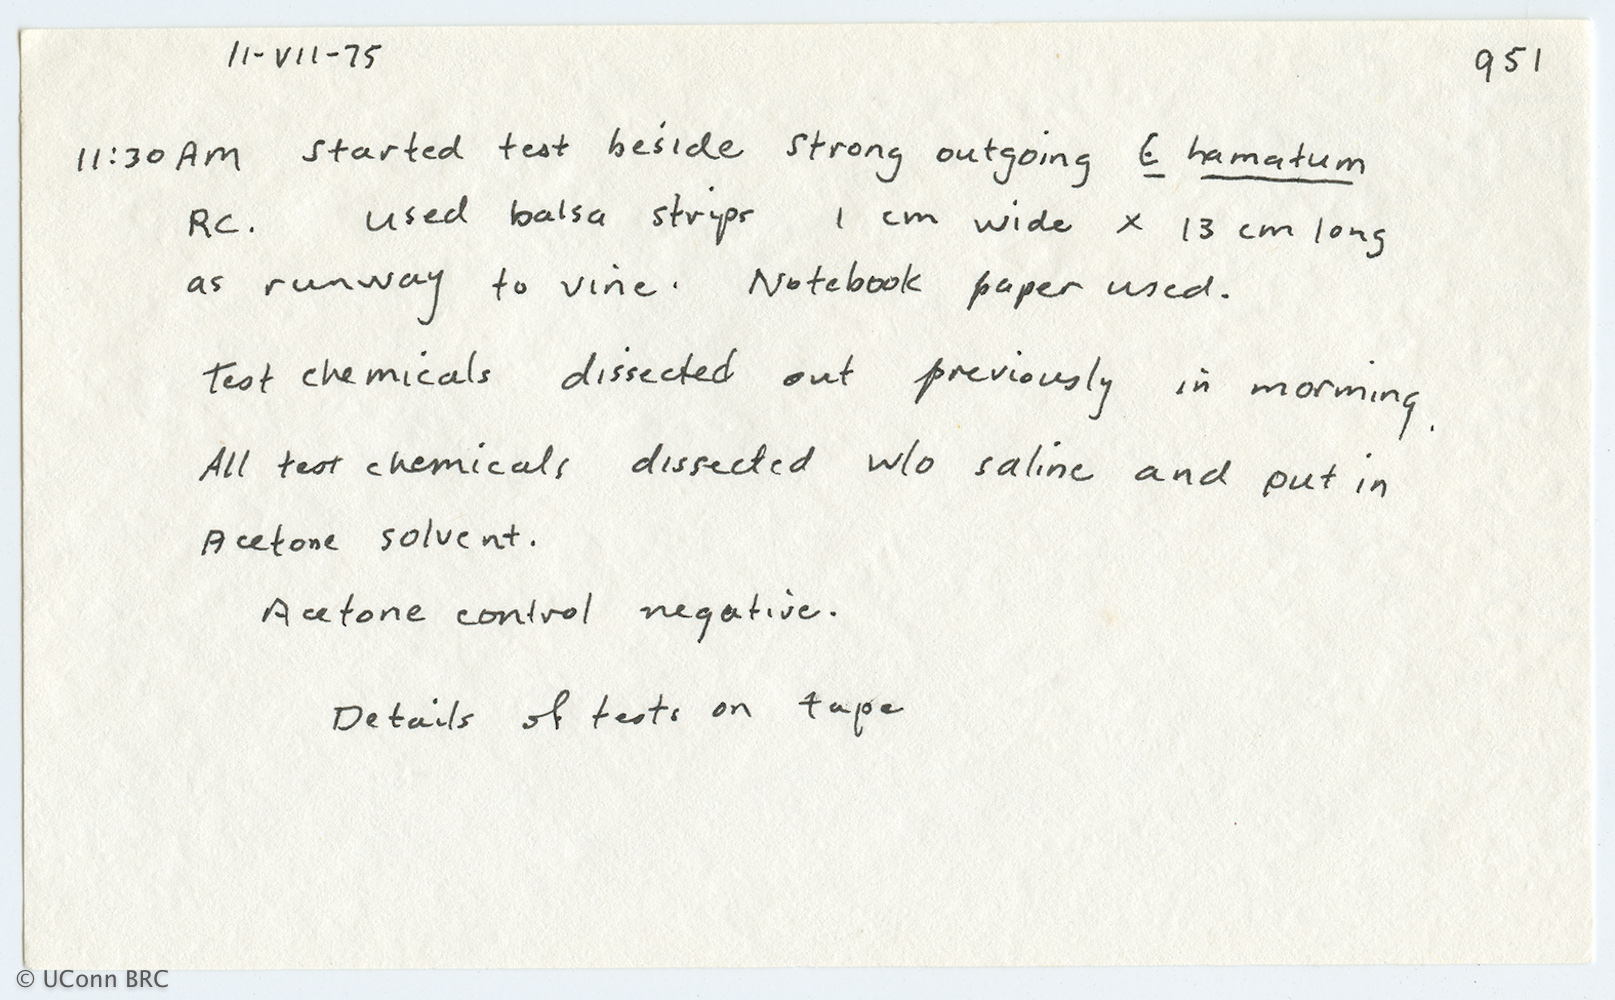 11-VII-75 951
11:30 AM Started test beside strong outgoing E hamatum
RC. used balsa strips 1 cm wide x 13 cm long
as runway to vine. Notebook paper used.
Test chemicals dissected out previously in morning.
All test chemicals dissected w/o saline and put in
Acetone solvent.
Acetone control negative.
Details of tests on tape
© UConn BRC